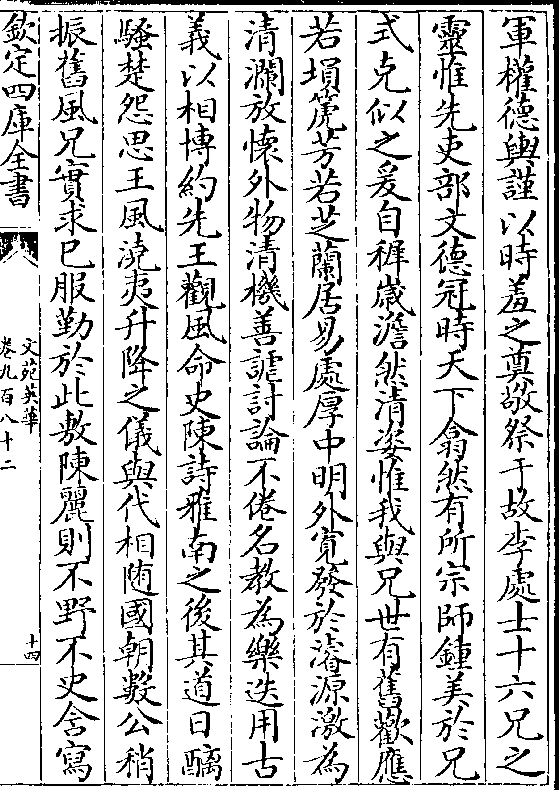 軍權德輿謹以時羞之奠敬祭于故李處士十六兄之
靈惟先吏部文德冠時天下翕然有所宗師鍾美於兄
式克似之爰自稺嵗澹然清姿惟我與兄世有舊歡應
若塤篪芳若芝蘭居易處厚中明外寛發於濬源激為
清瀾放懷外物清機善謔討論不倦名教為樂迭用古
義以相博約先王觀風命史陳詩雅南之後其道日醨
騷楚怨思王風澆夷升降之儀與代相随國朝數公稍
振舊風兄實求已服勤於此敷陳麗則不野不史含寫
欽定四庫全書
文苑英華
卷九百八十二
十四